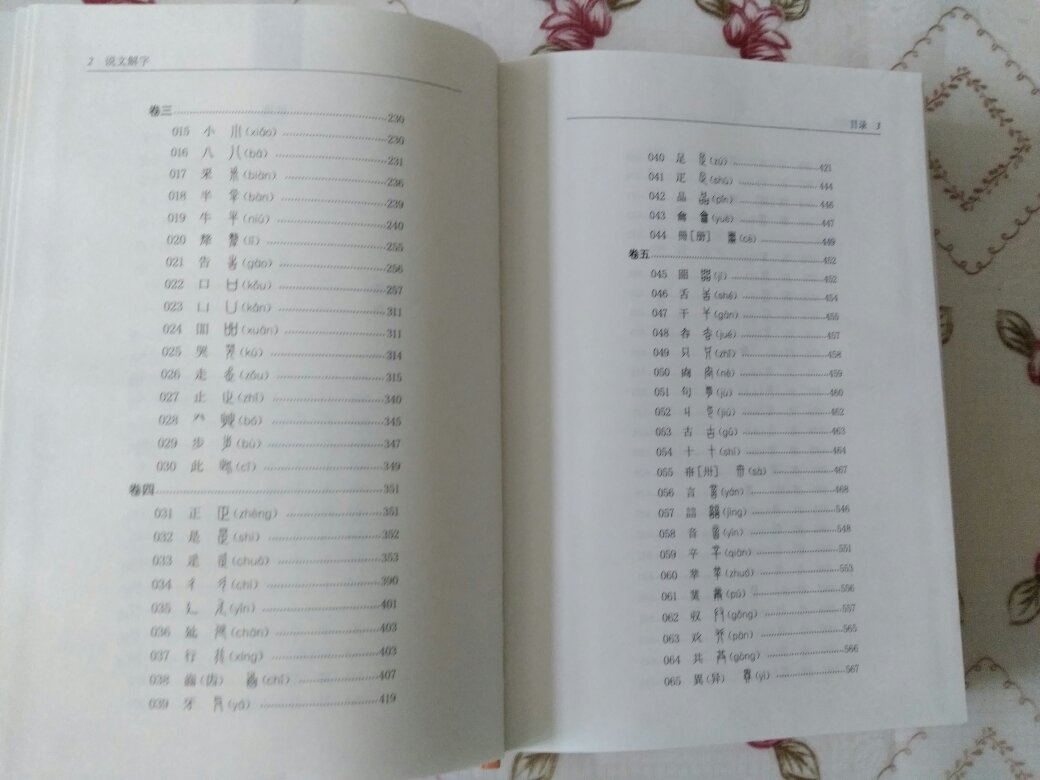 2 说文解字
卷三 230
015 小 (xiǎo) 230
016 八 (bā) 231
017 釆 (biàn) 236
018 半 (bàn) 239
019 牛 (niú) 240
020 犛 (lí) 255
021 告 (gào) 256
022 口 (kǒu) 257
023 凵 (kǎn) 311
024 吅 (xuān) 311
025 哭 (kū) 314
026 走 (zǒu) 315
027 止 (zhǐ) 340
028 癶 (bō) 345
029 步 (bù) 347
030 此 (cǐ) 349
卷四 351
031 正 (zhèng) 351
032 是 (shì) 352
033 辵 (chuò) 353
034 彳 (chì) 390
035 廴 (yǐn) 401
036 㢟 (chān) 403
037 行 (xíng) 403
038 齒(齿) (chǐ) 407
039 牙 (yá) 419
目录 3
040 足 (zú) 421
041 疋 (shū) 444
042 品 (pǐn) 446
043 龠 (yuè) 447
044 冊[册] (cè) 449
卷五 452
045 㗊 (jí) 452
046 舌 (shé) 454
047 干 (gān) 455
048 谷 (jué) 457
049 只 (zhǐ) 458
050 㕯 (nè) 459
051 句 (jù) 460
052 丩 (jiū) 462
053 古 (gǔ) 463
054 十 (shí) 464
055 卅 (sà) 467
056 言 (yán) 468
057 誩 (jìng) 546
058 音 (yīn) 548
059 䇂 (qiān) 551
060 丵 (zhuó) 553
061 菐 (pú) 556
062 収 (gǒng) 557
063 𠬜 (pān) 565
064 共 (gòng) 566
065 異(异) (yì) 567